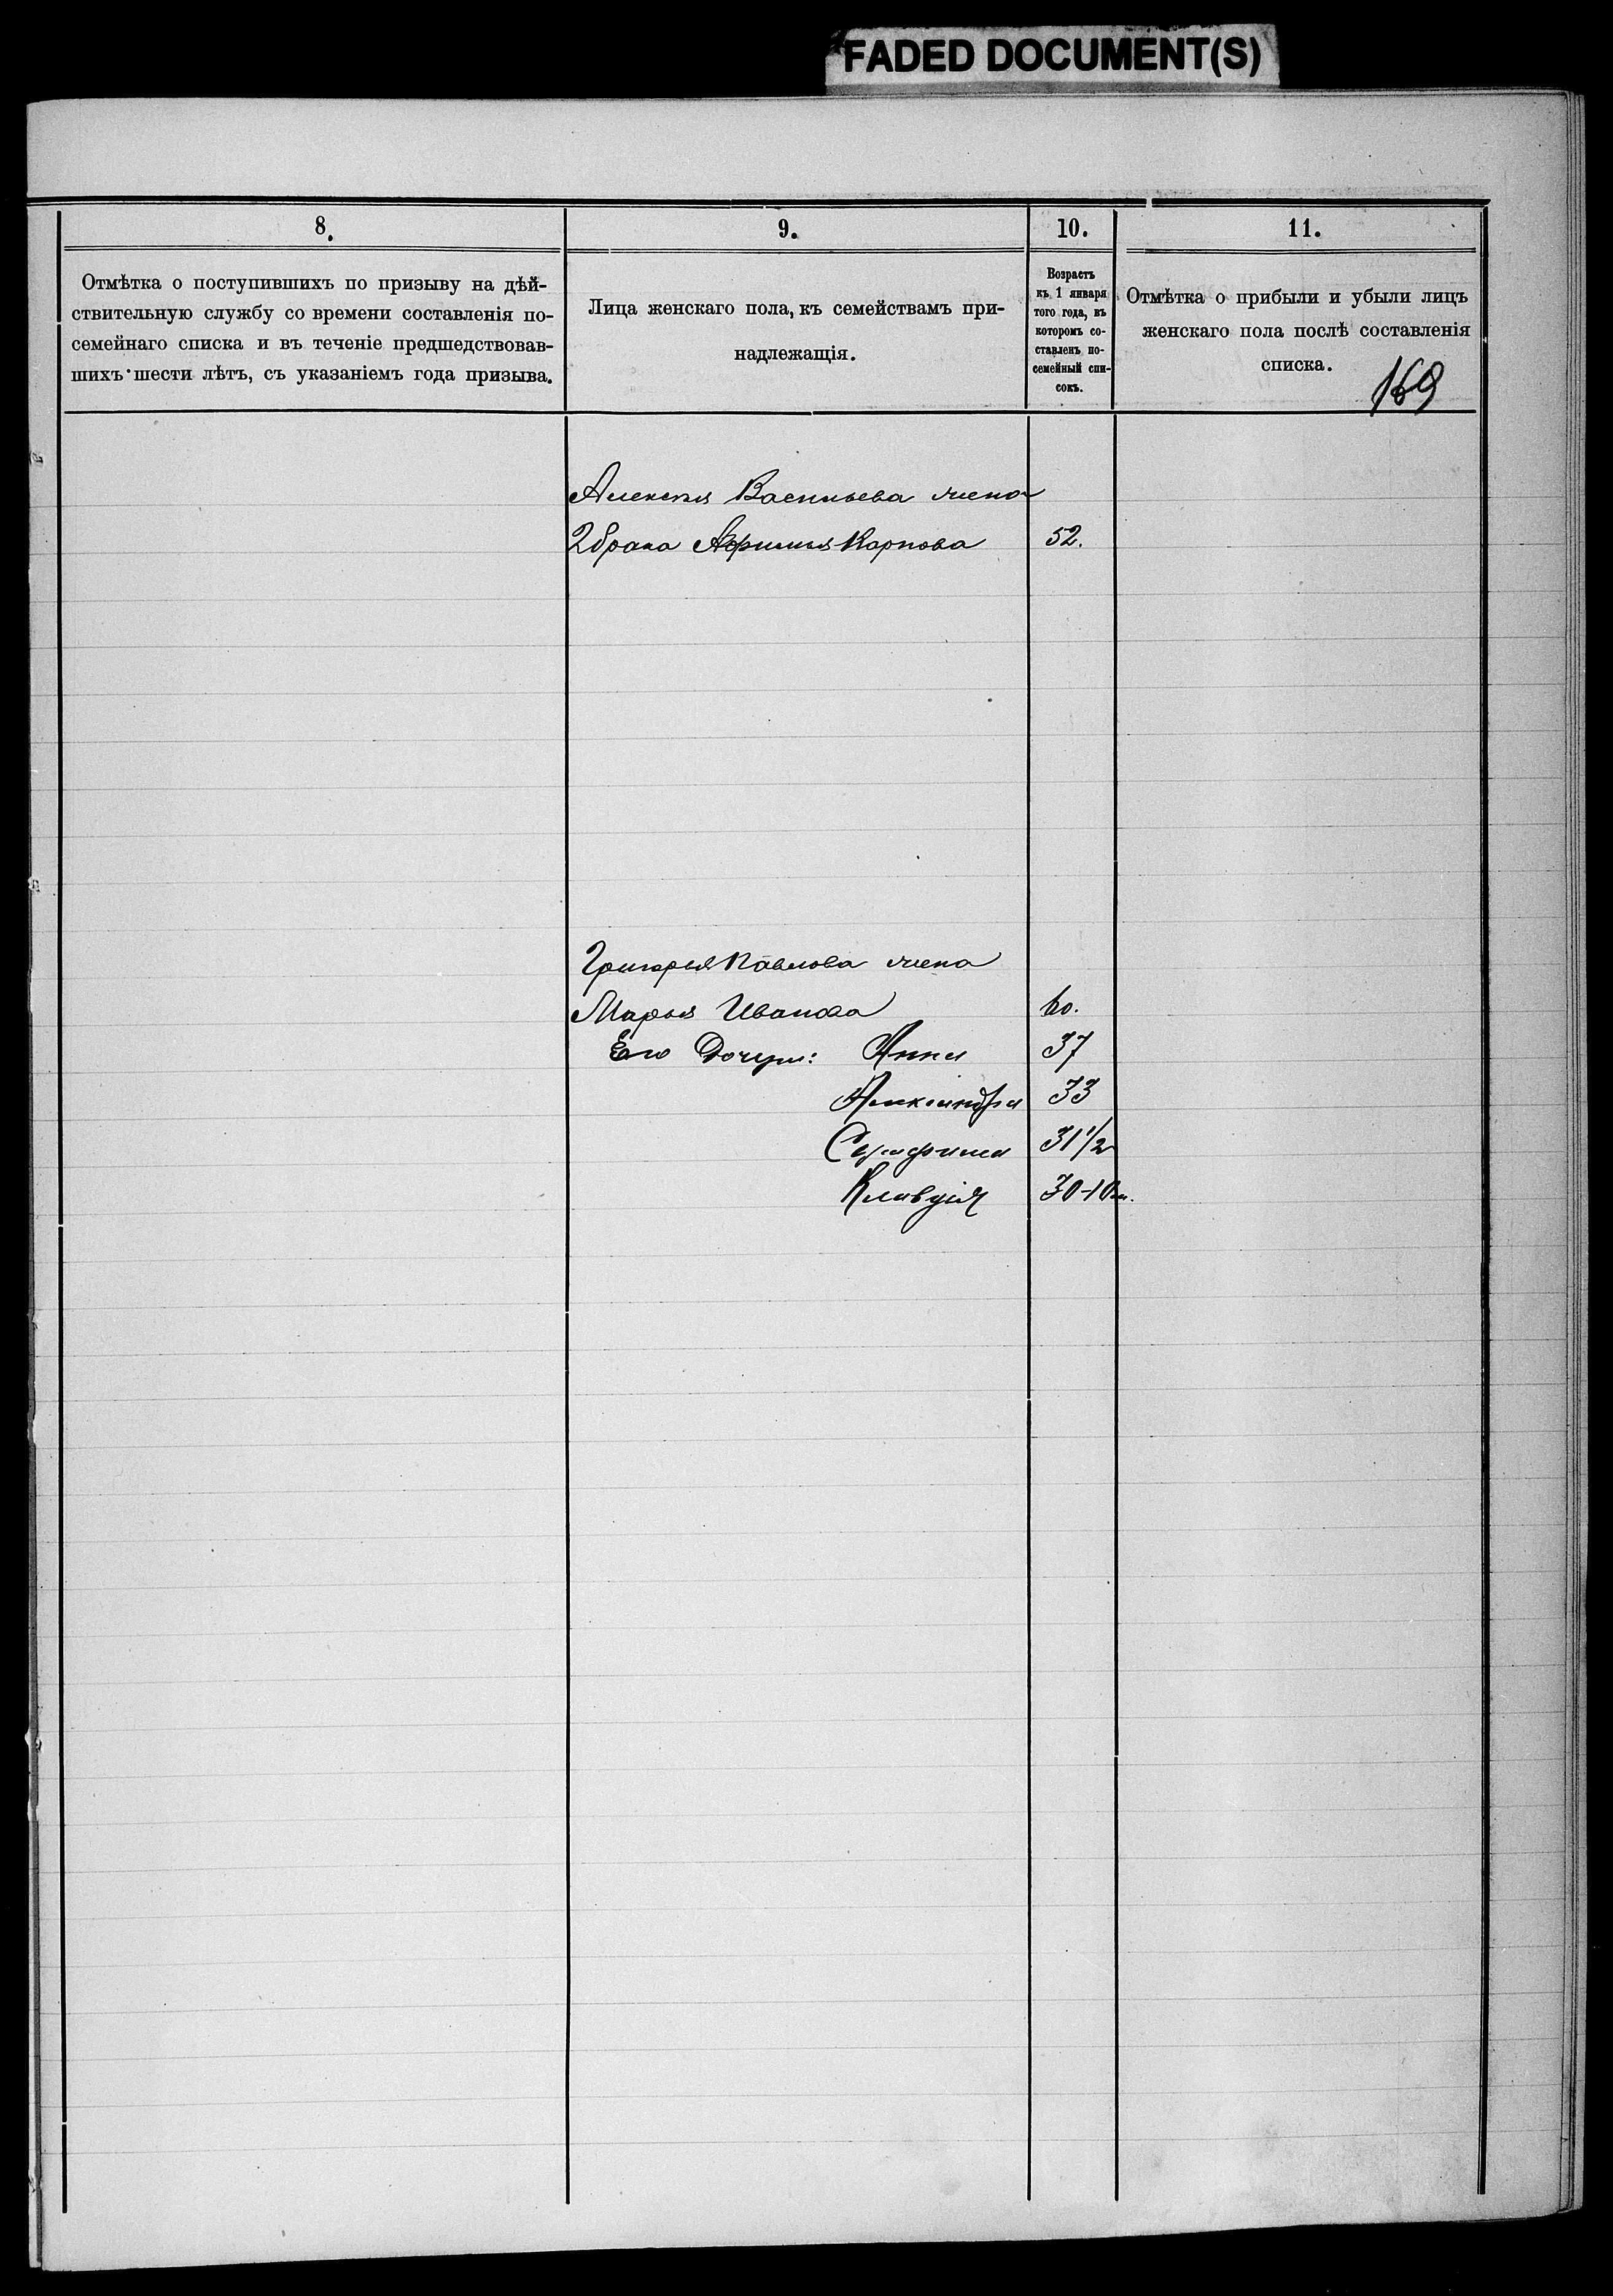 FADED DOCUMENT(S)
8.
Отмѣтка о поступившихъ по призыву на дѣй-
ствительную службу со времени составленія по-
семейнаго списка и въ теченіе предшедствовав-
шихъ шести лѣтъ, съ указаніемъ года призыва.
9.
Лица женскаго пола, къ семействамъ при-
надлежащія.
10.
Возрастъ
къ 1 января
того года, въ
которомъ со-
ставленъ по-
семейный спи-
сокъ.
11.
Отмѣтка о прибыли и убыли лицъ
женскаго пола послѣ составленія
списка.
169
Алексѣя Васильева жена
2 брака Афимия Карпова 52.
Григорья Павлова жена
Марья Иванова 60.
Его Дочери: Анна 37
Александра 33
Серафима 31 1/2
Клавдія 30-10 м.